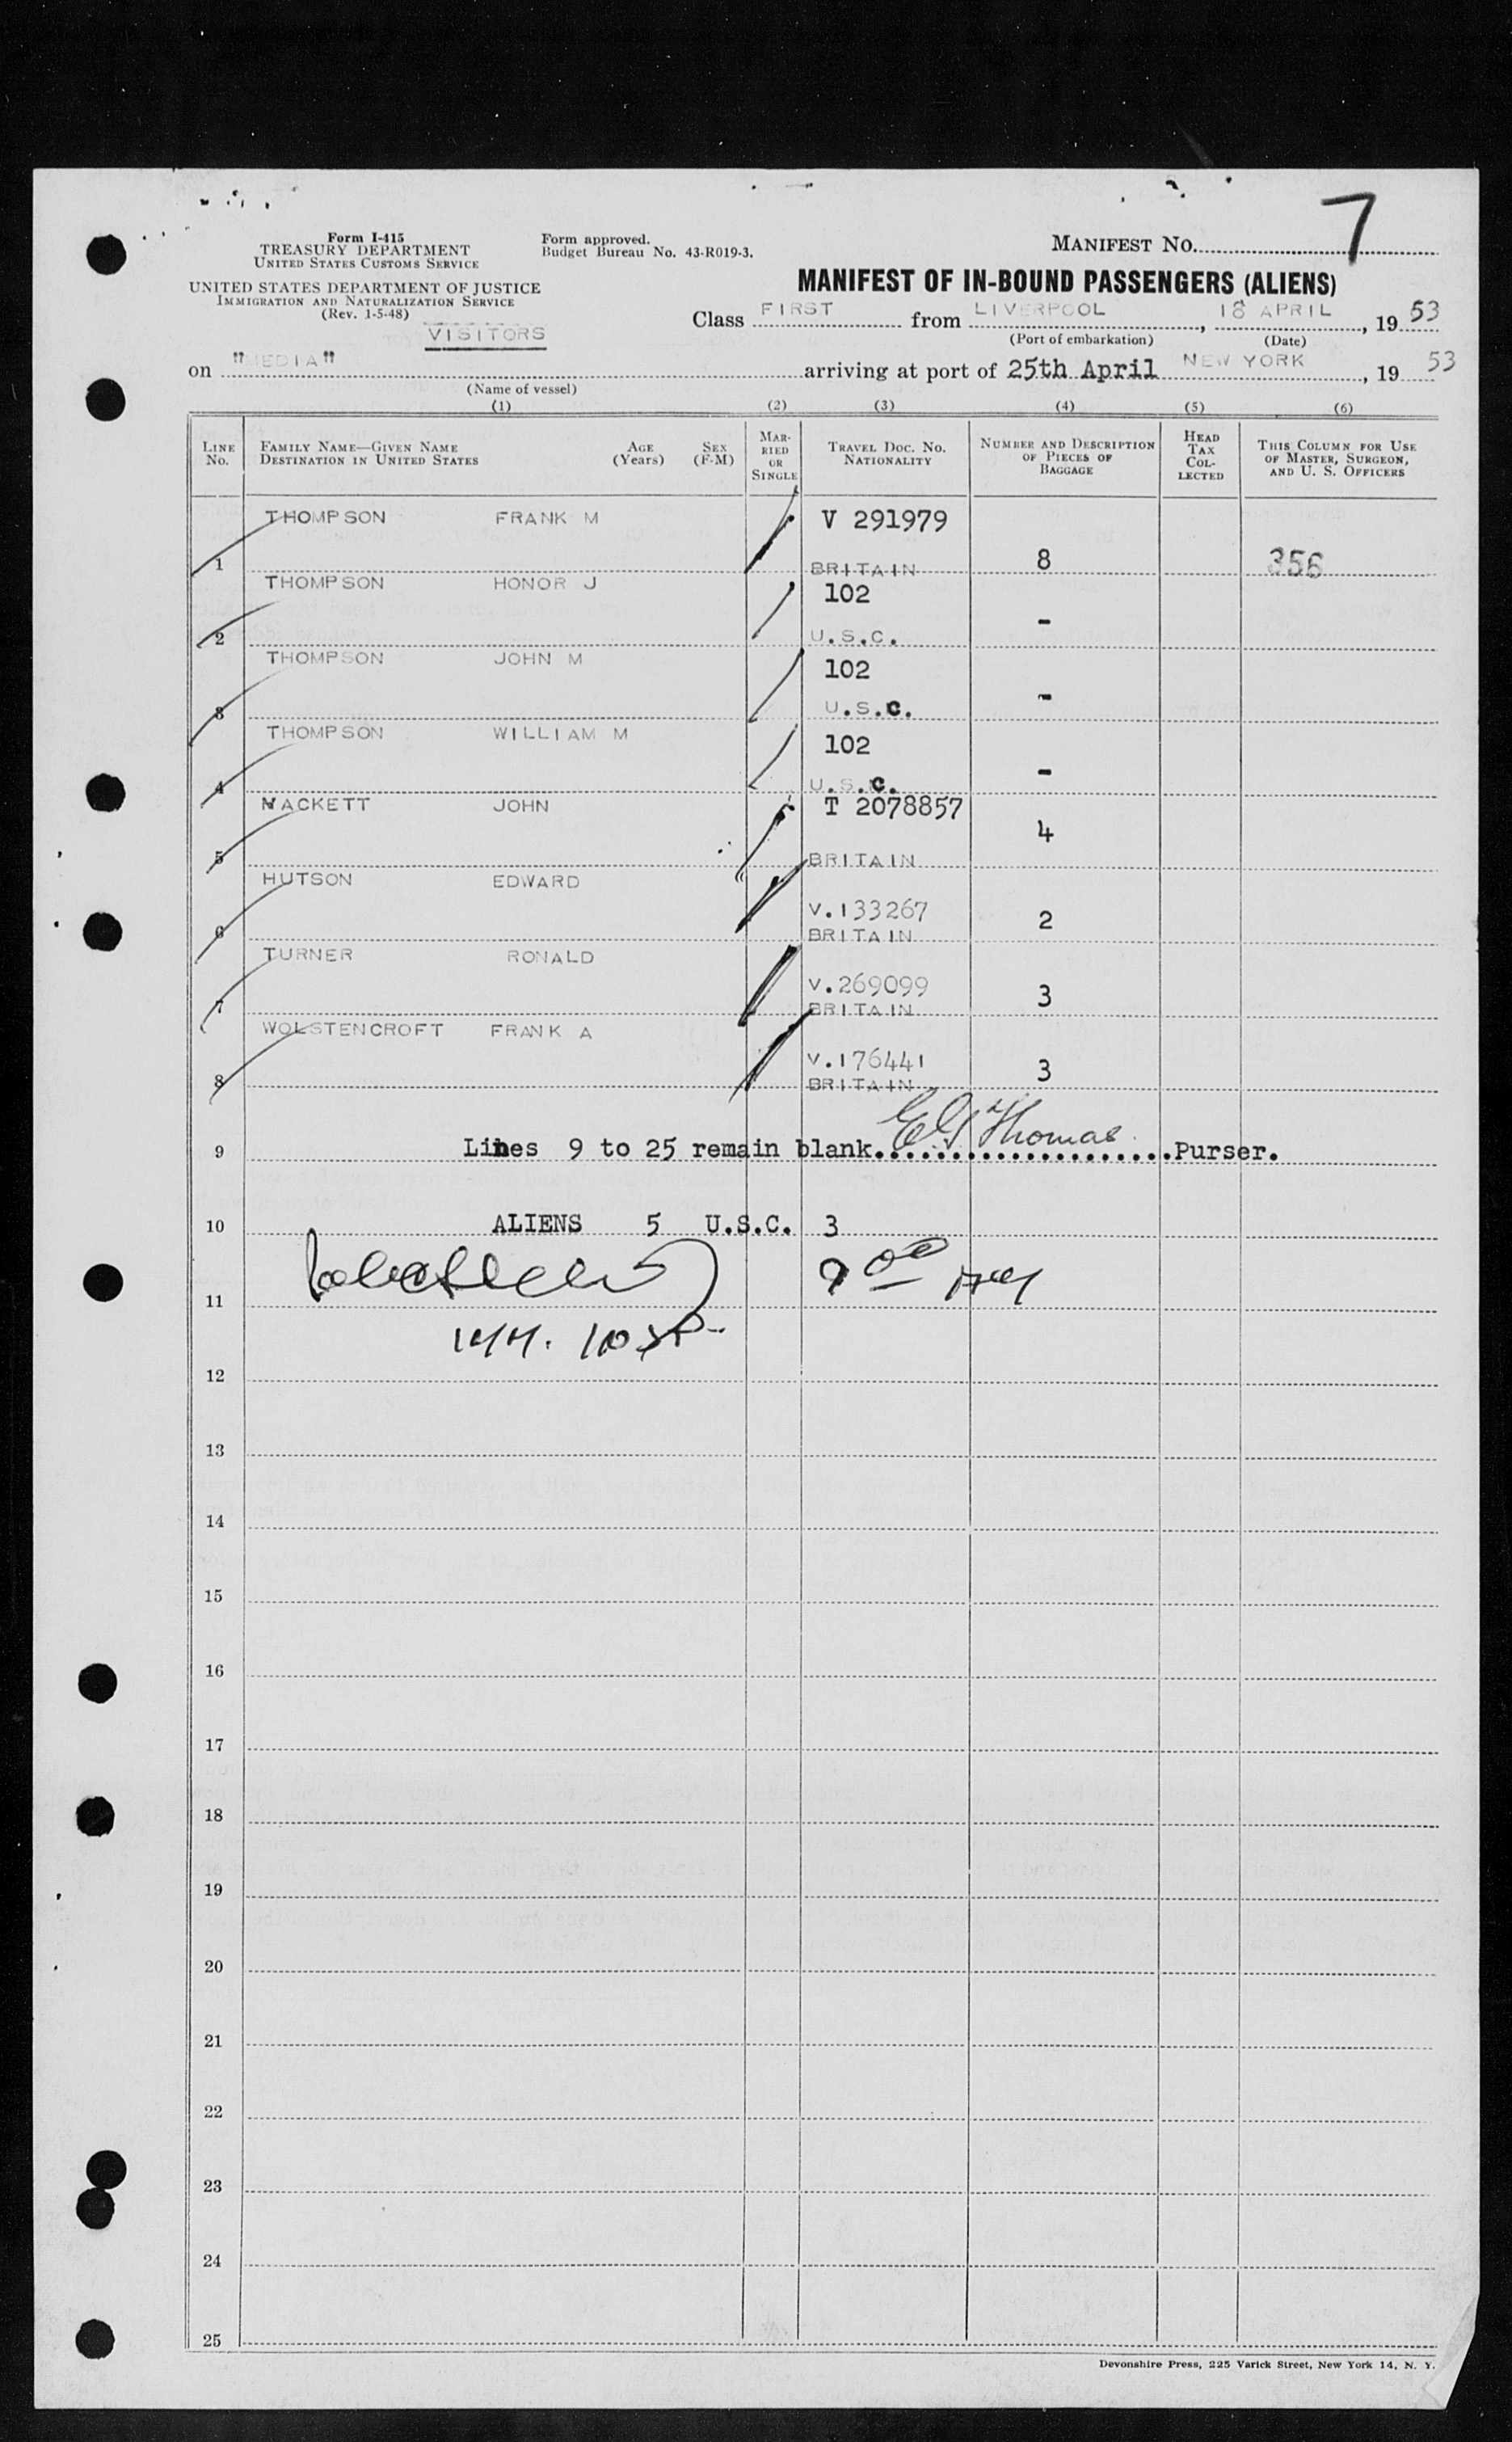 7
Form I-415
TREASURY DEPARTMENT
UNITED STATES CUSTOMS SERVICE
UNITED STATES DEPARTMENT OF JUSTICE
IMMIGRATION AND NATURALIZATION SERVICE
(Rev. 1-5-48)
VISITORS
Form approved.
Budget Bureau No. 43-R019-3.
MANIFEST NO.
MANIFEST OF IN-BOUND PASSENGERS (ALIENS)
Class FIRST from LIVERPOOL, 18 APRIL, 1953
(Port of embarkation) (Date)
on "MEDIA" arriving at port of 25th April NEW YORK, 1953
(Name of vessel)
(1) (2) (3) (4) (5) (6)
LINE NO. FAMILY NAME—GIVEN NAME DESTINATION IN UNITED STATES AGE (Years) SEX (F-M) MARRIED OR SINGLE TRAVEL DOC. NO. NATIONALITY NUMBER AND DESCRIPTION OF PIECES OF BAGGAGE HEAD TAX COLLECTED THIS COLUMN FOR USE OF MASTER, SURGEON, AND U. S. OFFICERS
THOMPSON FRANK M V 291979
1 BRITAIN 8 356
THOMPSON HONOR J 102
2 U.S.C. -
THOMPSON JOHN M 102
3 U.S.C. -
THOMPSON WILLIAM M 102
4 U.S.C. -
MACKETT JOHN T 2078857
5 BRITAIN 4
HUTSON EDWARD V.133267
6 BRITAIN 2
TURNER RONALD V.269099
7 BRITAIN 3
WOLSTENCROFT FRANK A V.176441
8 BRITAIN 3
9 Lines 9 to 25 remain blank. E G Thomas Purser.
10 ALIENS 5 U.S.C. 3
11
12
13
14
15
16
17
18
19
20
21
22
23
24
25
Devonshire Press, 225 Varick Street, New York 14, N. Y.